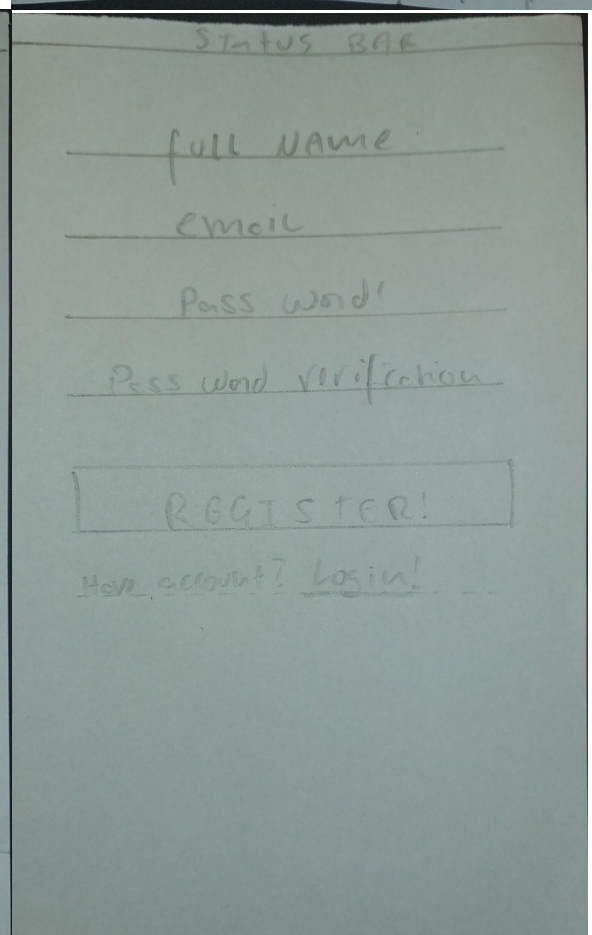 Status BAR
full NAme
email
Pass word
Pass word verification
REGISTER!
Have account? Login!